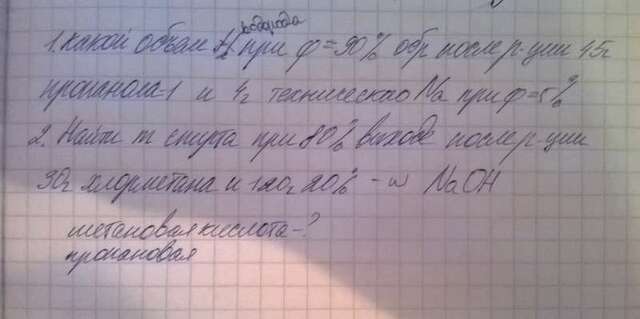 водорода
1. какой объем H2 при φ=90% обр после р-ции 15г
пропанола-1 и 4г технического Na при φ=5%
2. Найти m спирта при 80% выходе после р-ции
30г хлорметана и 120г 20% -ω NaOH
метановая кислота-?
пропановая